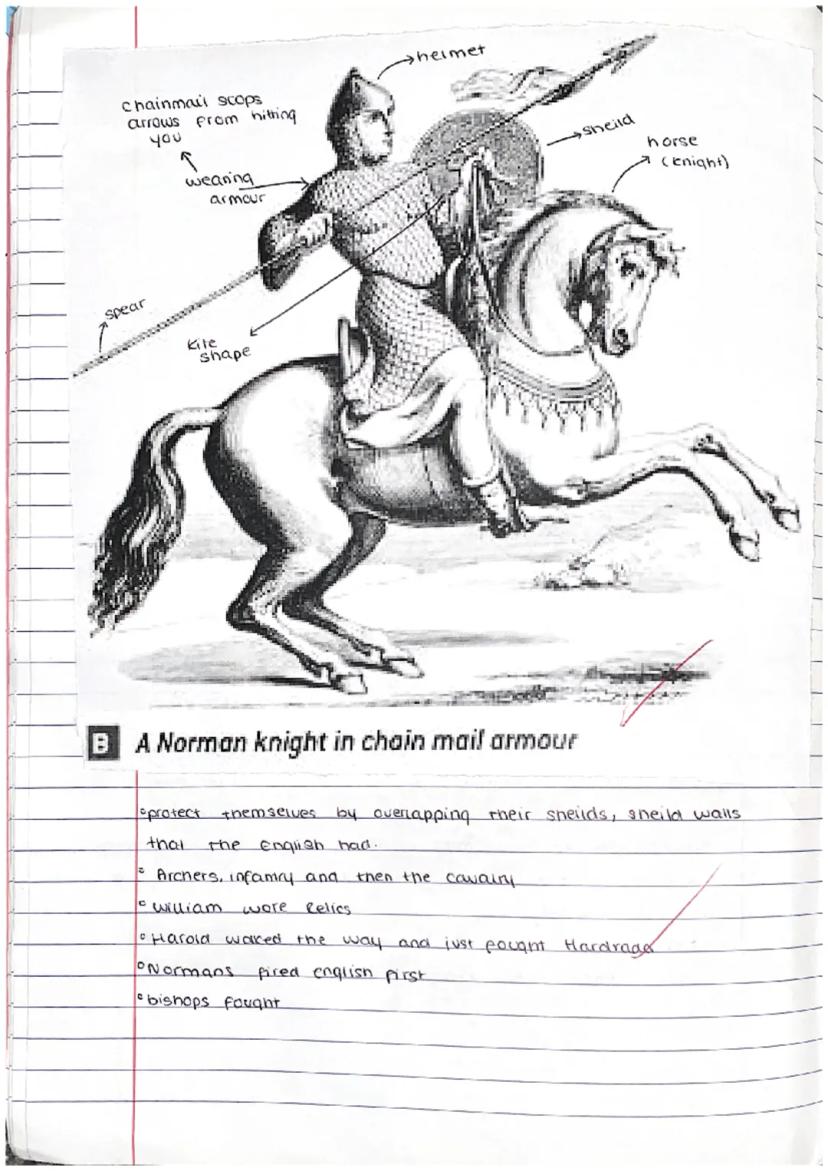 helmet
chainmail stops
arrows from hitting
you
sheild
horse
(knight)
wearing
armour
spear
kite
shape
B A Norman knight in chain mail armour
°protect themselves by overlapping their sheilds, sheild walls
that the English had.
° Archers, infantry and then the cavalry
° William wore Relics
° Harold waked the way and just fought Hardrada
°Normans fired english first
°bishops fought